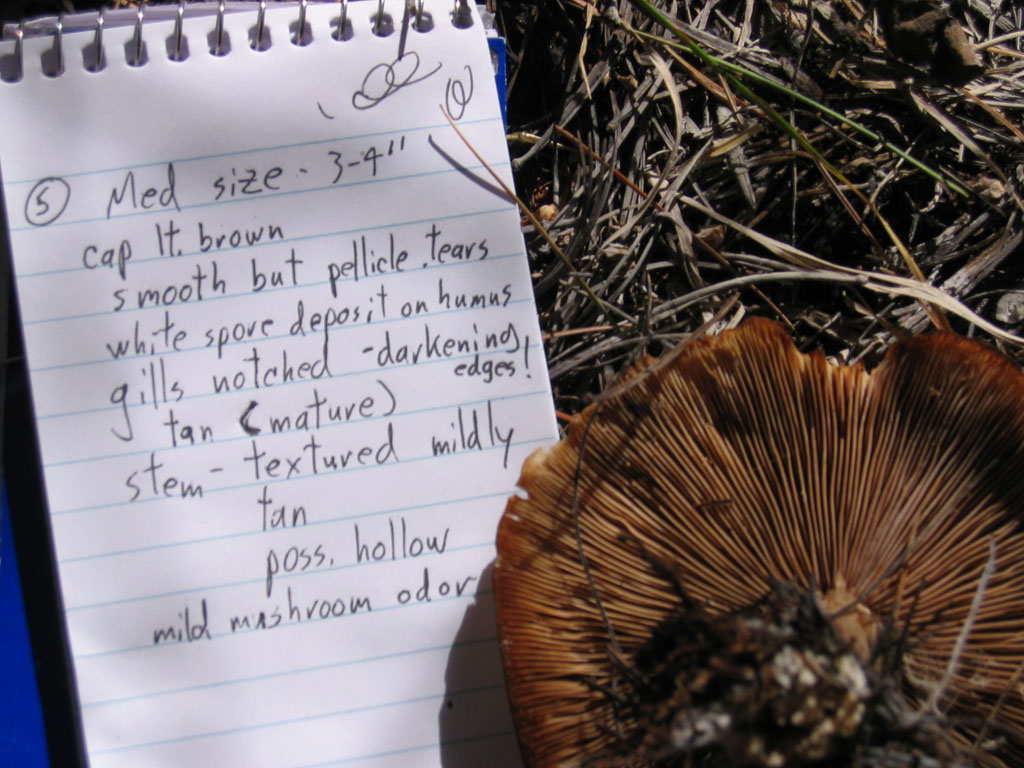 5 Med size - 3-4"
cap lt. brown
smooth but pellicle tears
white spore deposit on humus
gills notched - darkening edges!
tan (mature)
stem - textured mildly
tan
poss. hollow
mild mushroom odor